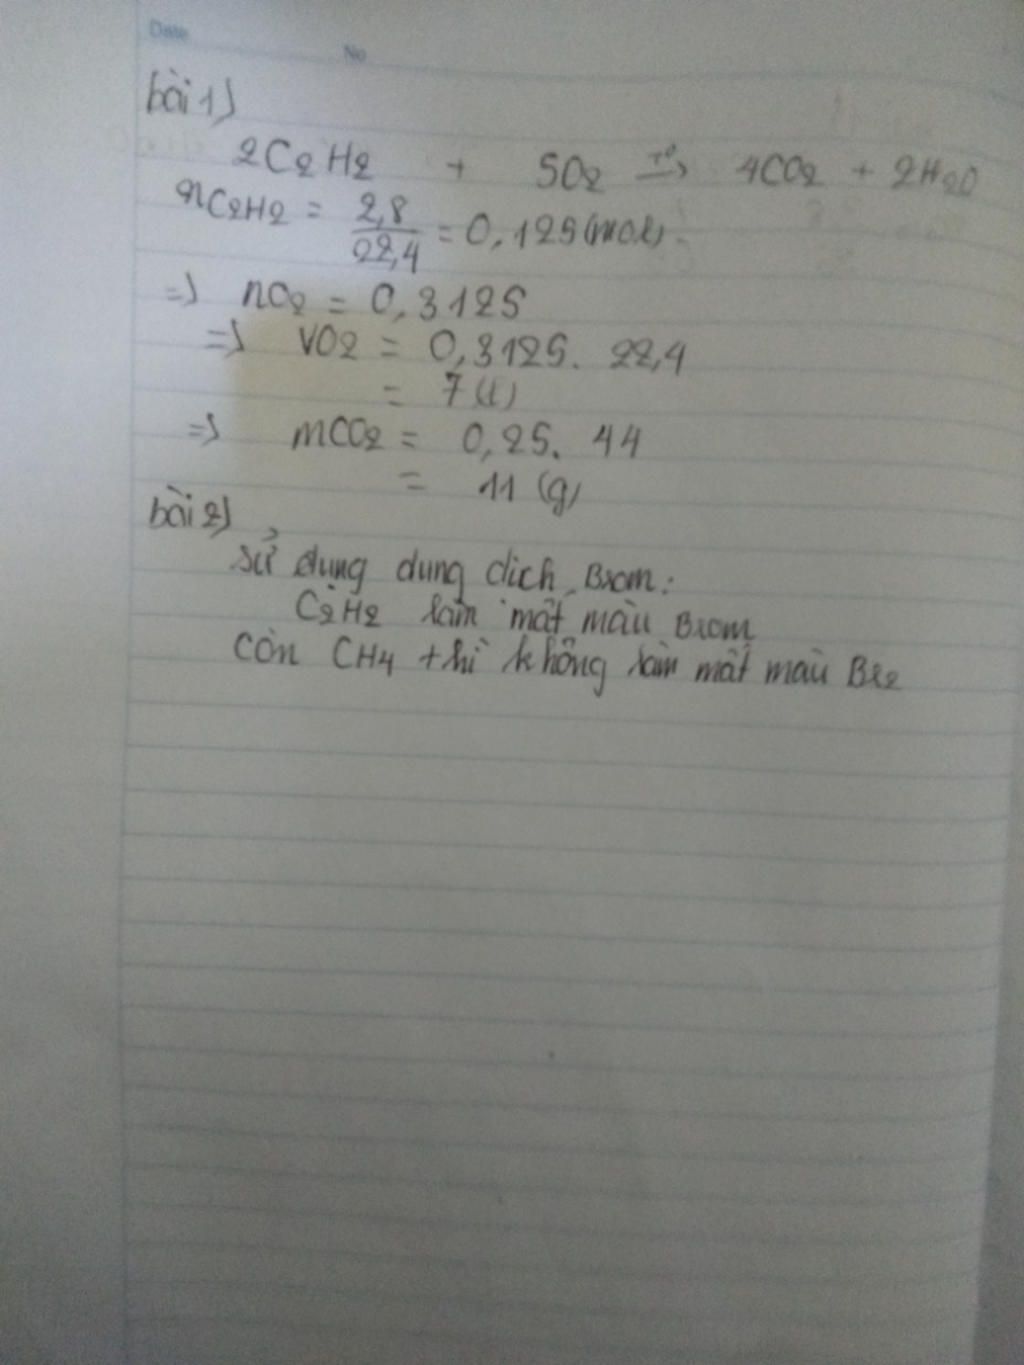 Date
No
bài 1)
2C2H2 + 5O2 t°→ 4CO2 + 2H2O
nC2H2 = 2,8/22,4 = 0,125(mol)
=> nO2 = 0,3125
=> VO2 = 0,3125. 22,4
= 7(l)
=> mCO2 = 0,25. 44
= 11 (g)
bài 2)
Sử dụng dung dich Brom:
C2H2 làm mất màu Brom
còn CH4 thì không làm mất màu Br2